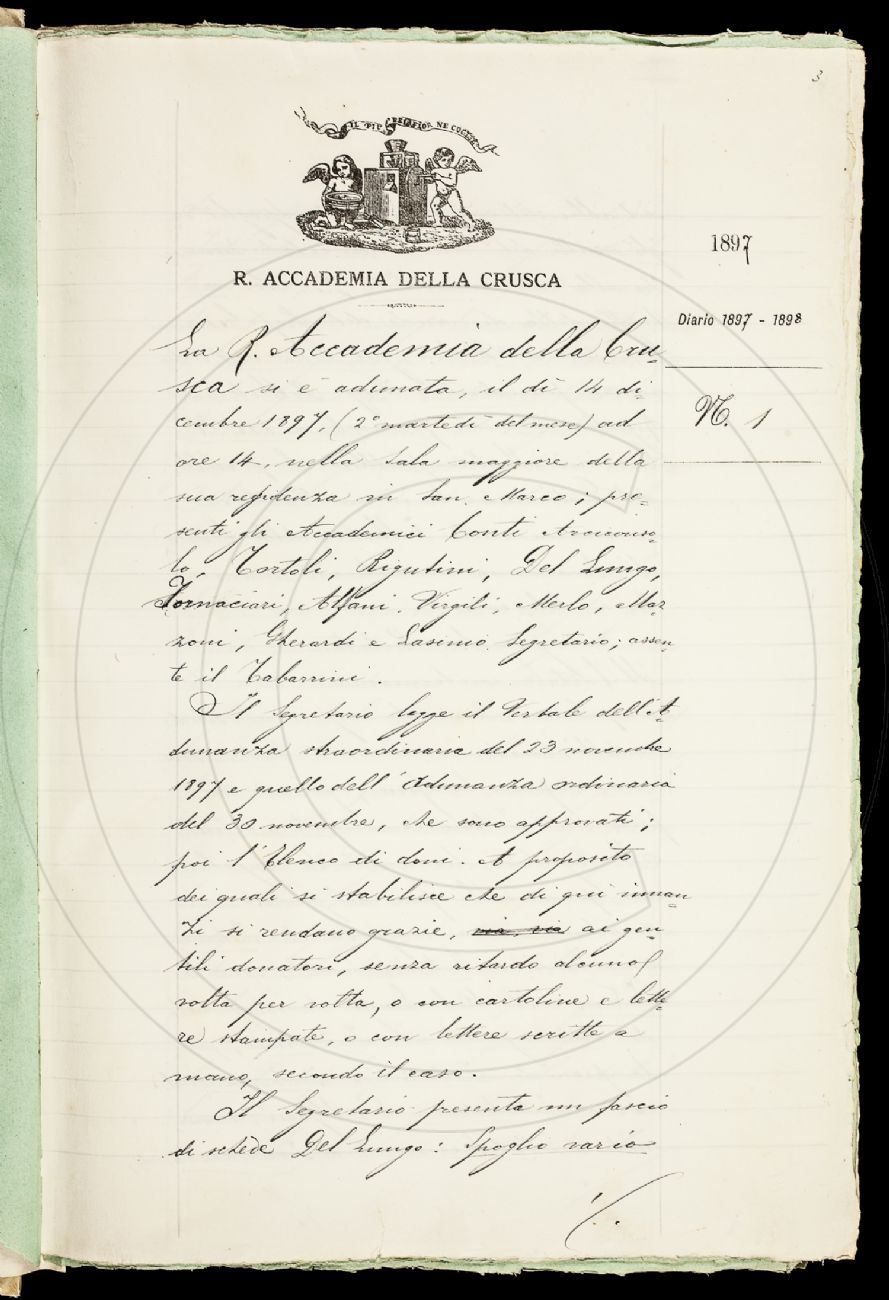 3
IL PIÙ BEL FIOR NE COGLIE
R. ACCADEMIA DELLA CRUSCA
1897
Diario 1897 - 1898
N. 1
La R. Accademia della Cru-
sca si è adunata, il dì 14 di-
cembre 1897, (2° martedì del mese) ad
ore 14, nella Sala maggiore della
sua residenza in San Marco; pre-
senti gli Accademici Conti Arciconso-
lo, Tortoli, Rigutini, Del Lungo,
Fornaciari, Alfani, Virgili, Merlo, Maz-
zoni, Gherardi e Lasinio Segretario; assen-
te il Tabarrini.
Il Segretario legge il Verbale dell'A-
dunanza straordinaria del 23 novembre
1897 e quello dell'Adunanza ordinaria
del 30 novembre, che sono approvati;
poi l'Elenco di doni. A proposito
dei quali si stabilisce che di qui innan-
zi si rendano grazie, via via ai gen-
tili donatori, senza ritardo alcuno
volta per volta, o con cartoline e lette-
re stampate, o con lettere scritte a
mano, secondo il caso.
Il Segretario presenta un fascio
di schede Del Lungo: Spoglio vario